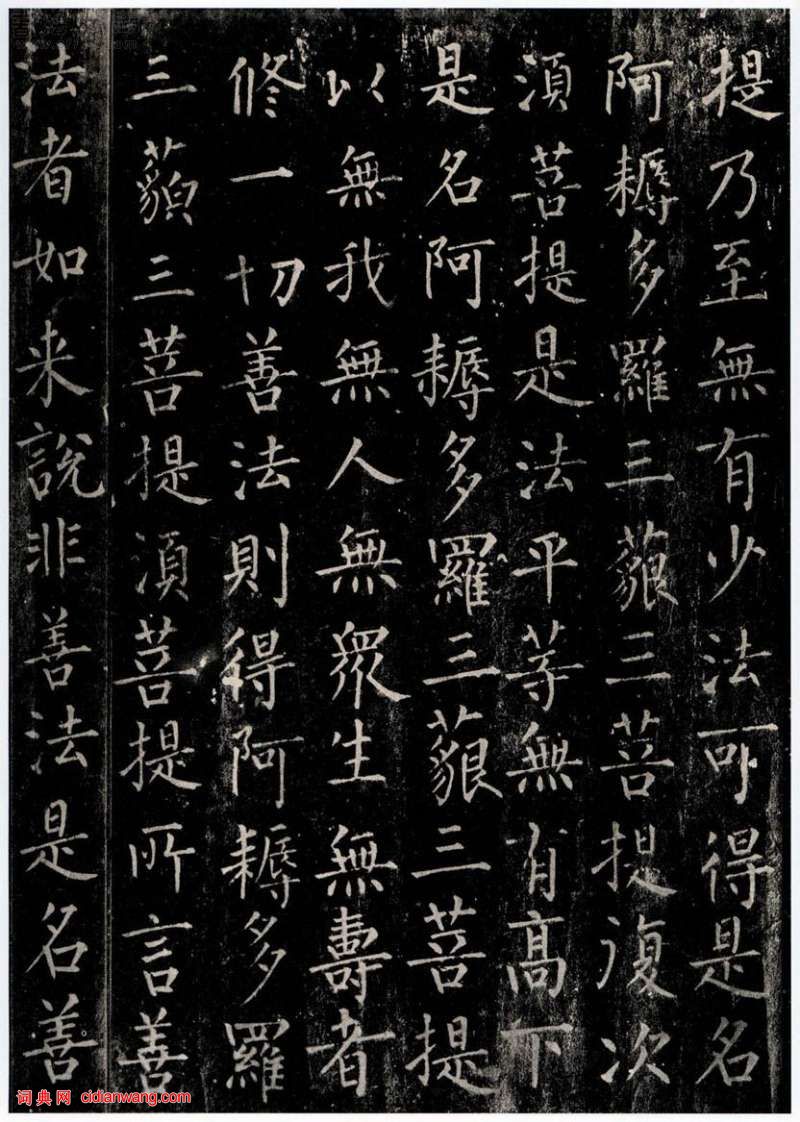 提乃至無有少法可得是名
阿耨多羅三藐三菩提復次
須菩提是法平等無有高下
是名阿耨多羅三藐三菩提
以無我無人無眾生無壽者
修一切善法則得阿耨多羅
三藐三菩提須菩提所言善
法者如来說非善法是名善
词典网 cidianwang.com